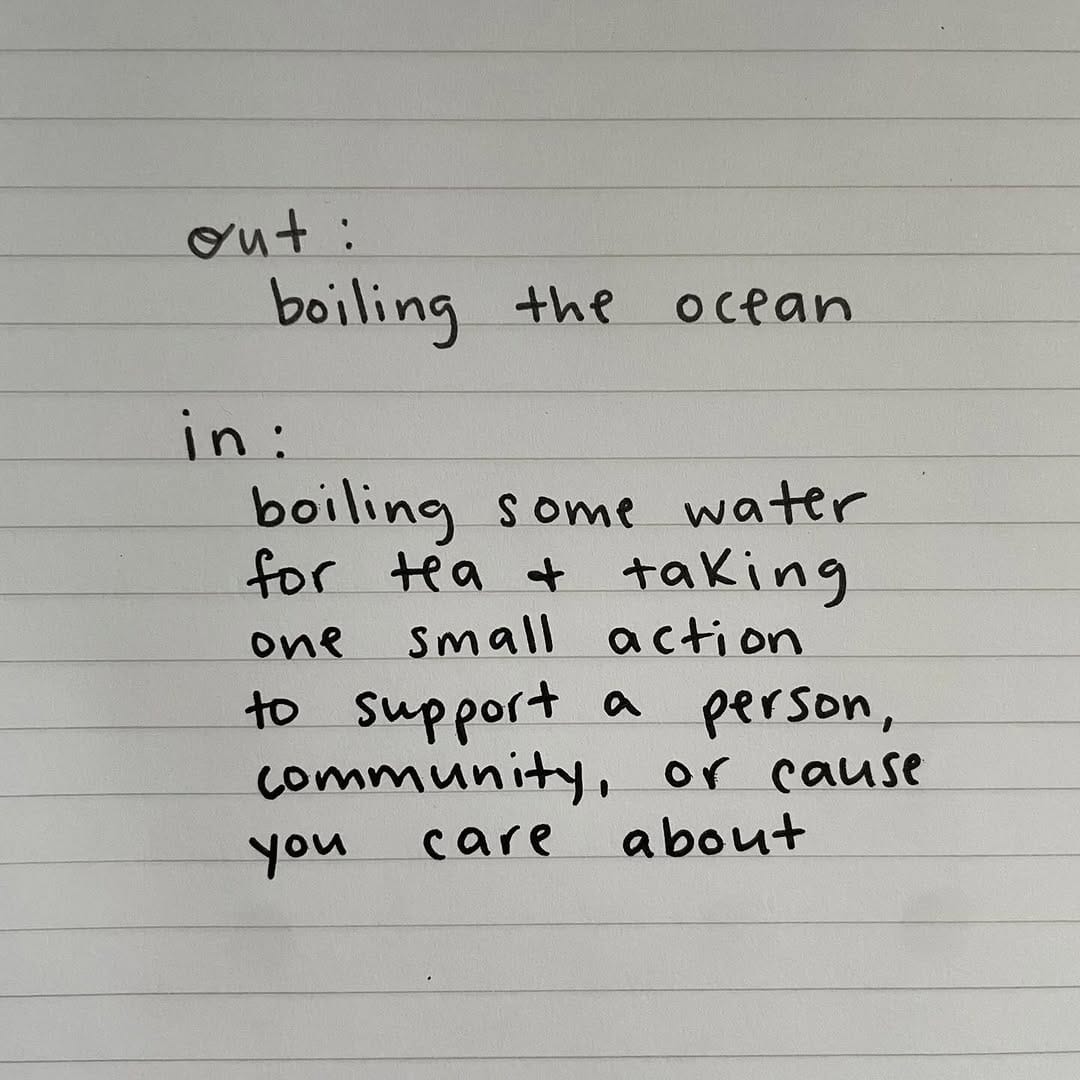 out:
boiling the ocean
in:
boiling some water
for tea + taking
one small action
to support a person,
community, or cause
you care about